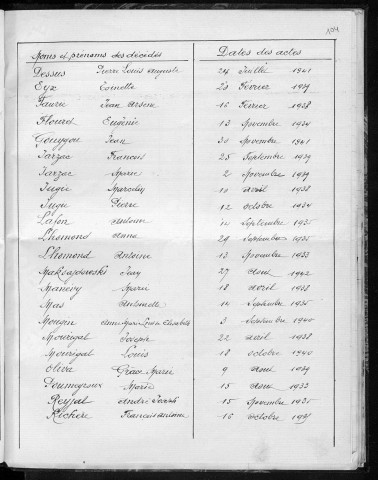 101
Noms et prénoms des décédés Dates des actes
Dessus Pierre Louis Auguste 24 Juillet 1941
Eyx Toinette 23 Fevrier 1937
Faurie Jean Arsène 16 Fevrier 1938
Flouret Eugénie 13 Novembre 1934
Gouygou Jean 30 Novembre 1941
Jarzac Francois 25 Septembre 1939
Jarzac Marie 2 Novembre 1939
Jugie Marcelin 10 Avril 1938
Jugie Pierre 12 Octobre 1934
Lafon Antoine 12 Septembre 1935
Lhomond Anna 29 Septembre 1935
Lhomond Antoine 13 Novembre 1933
Jean 27 Aout 1942
Manevy Marie 18 Avril 1938
Mas Antoinette 12 Septembre 1935
Mougin Anne Marie Louise Elisabeth 3 Septembre 1940
Mourigal Joseph 22 Avril 1938
Mourigal Louis 18 Octobre 1940
Oliva Grâce Marie 9 Aout 1939
Peumeyroux Marie 15 Aout 1933
Reyjal André Joseph 15 Novembre 1935
Richère Francois Antoine 16 Octobre 1937